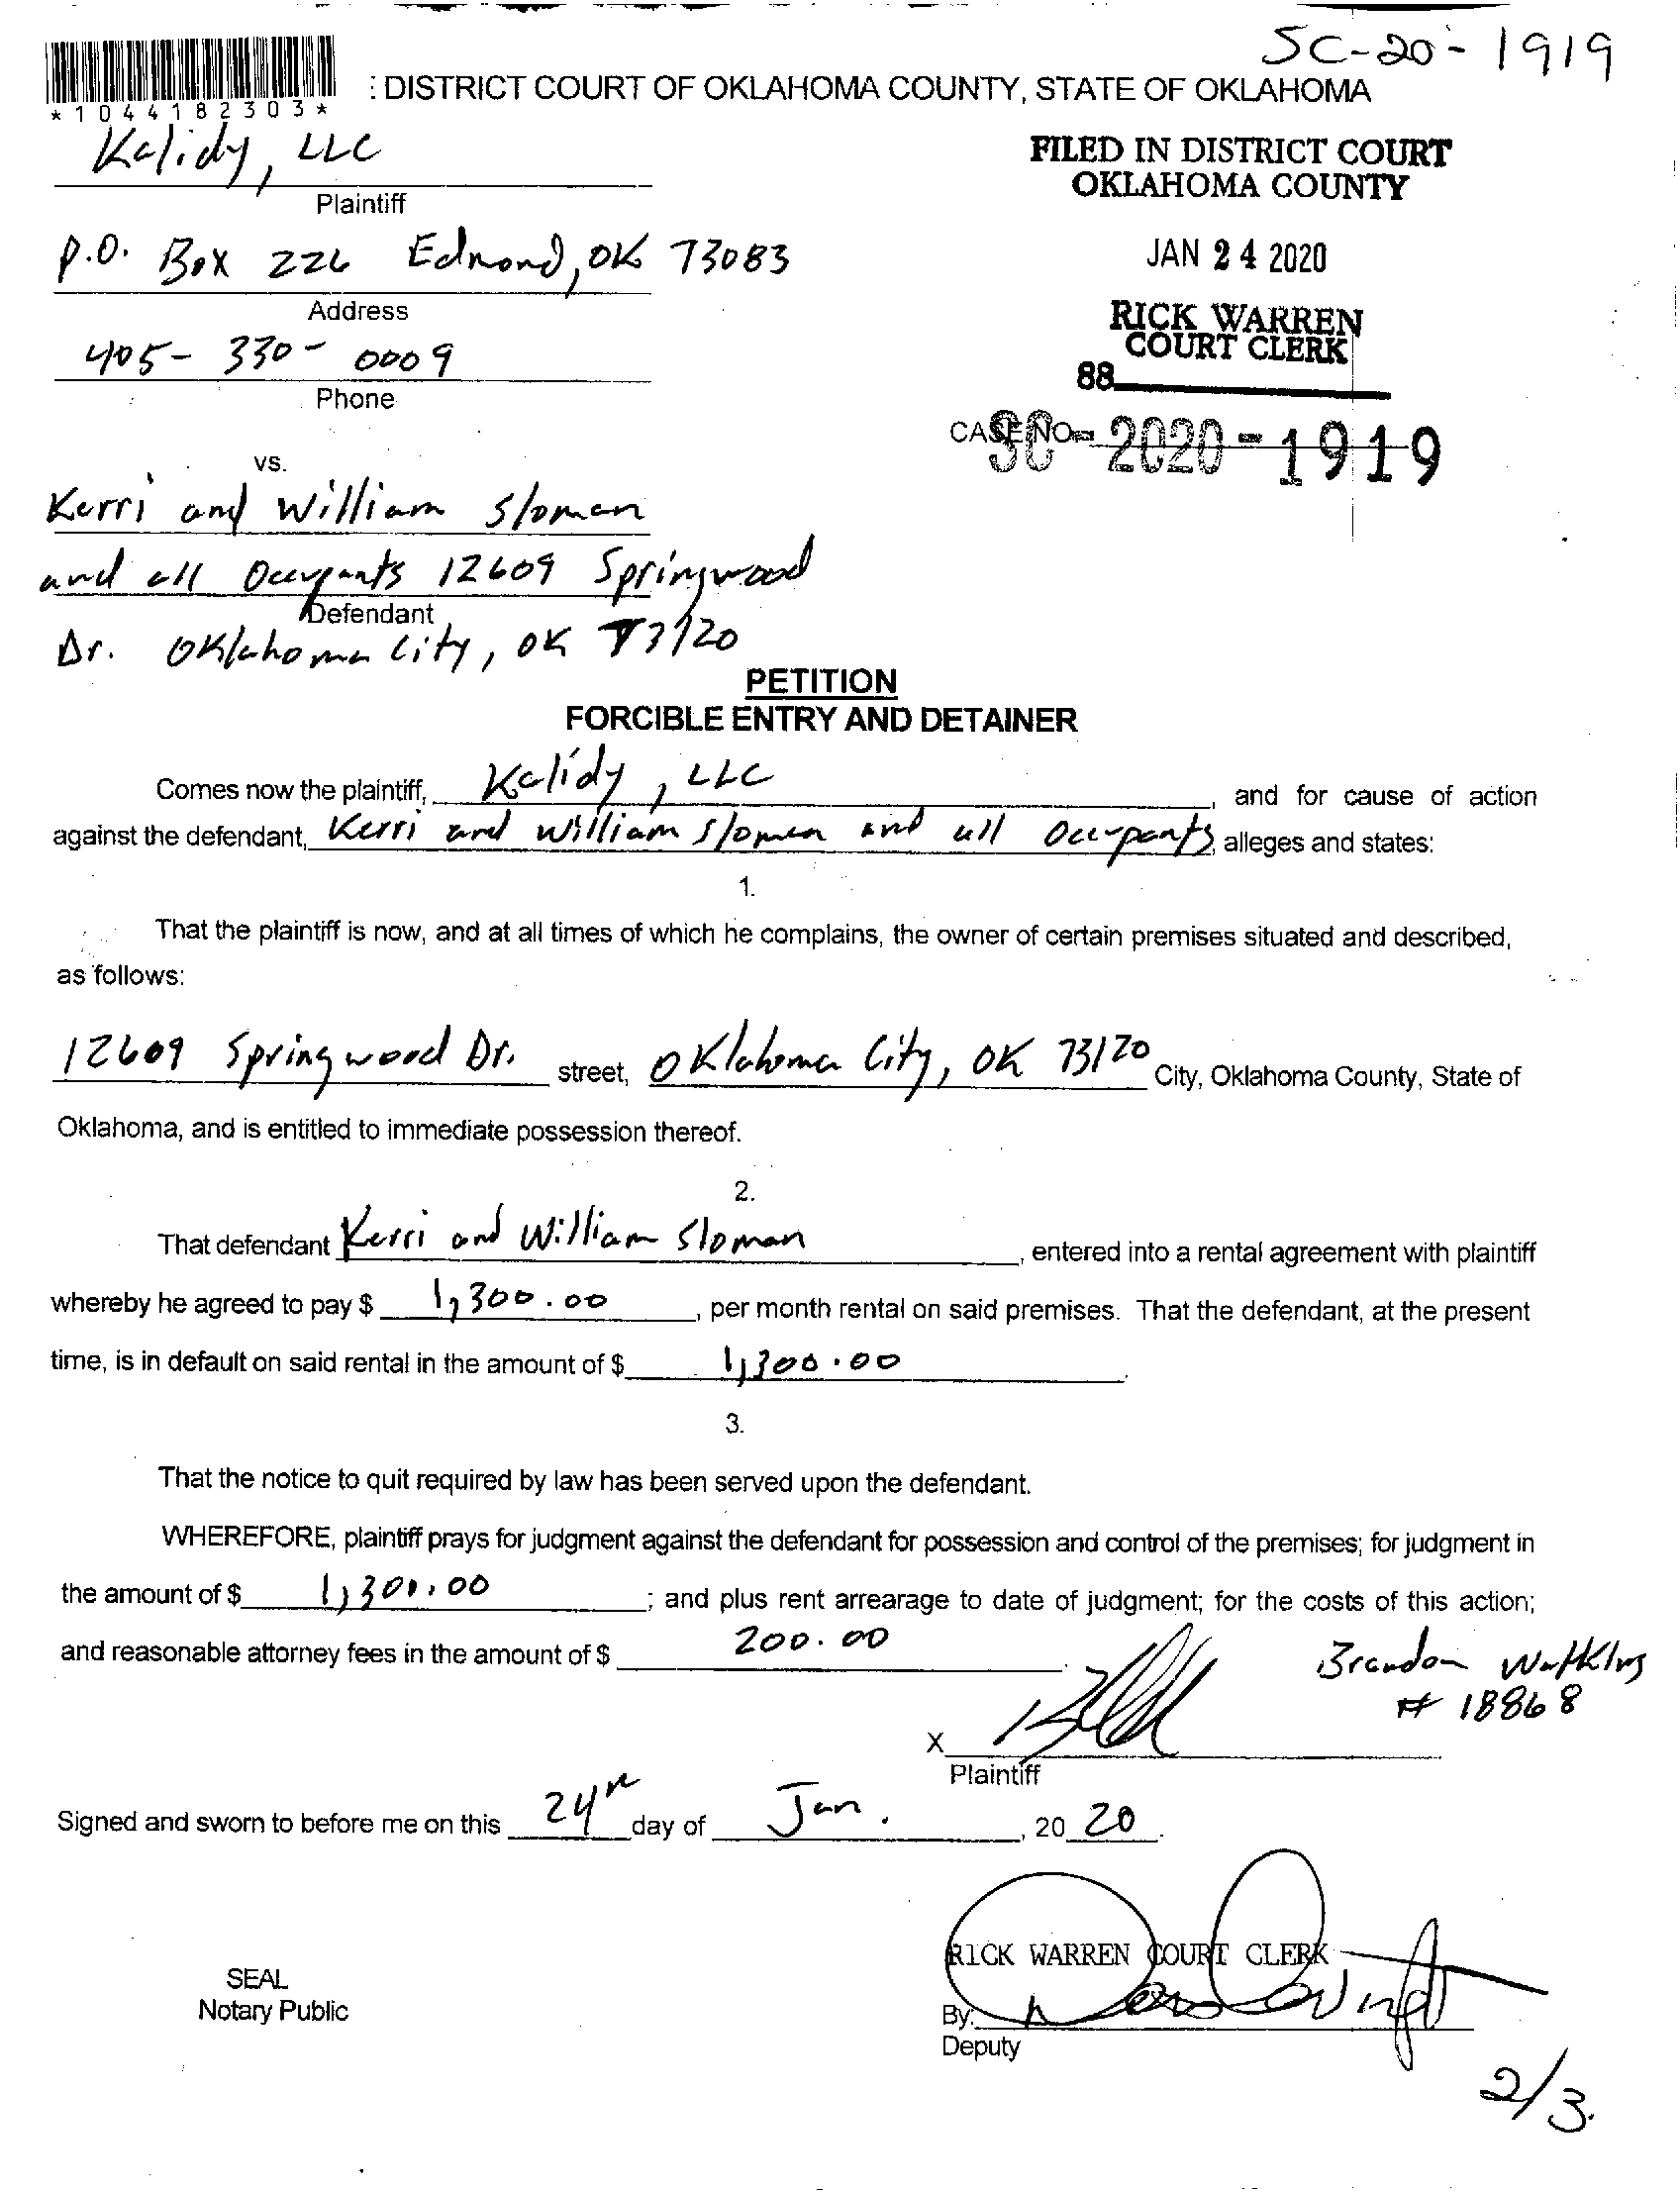 SC-20-1919
*1044182303*
: DISTRICT COURT OF OKLAHOMA COUNTY, STATE OF OKLAHOMA
Kalidy, LLC
Plaintiff
FILED IN DISTRICT COURT
OKLAHOMA COUNTY
P.O. Box 226 Edmond, OK 73083
Address
JAN 24 2020
405-330-0009
Phone
RICK WARREN
COURT CLERK
88
CASE NO. SC-2020-1919
vs.
Kerri and William Sloman
and all Occupants 12609 Springwood
Defendant
Dr. Oklahoma City, OK 73120
PETITION
FORCIBLE ENTRY AND DETAINER
Comes now the plaintiff, Kalidy, LLC, and for cause of action
against the defendant, Kerri and William Sloman and all Occupants, alleges and states:
1.
That the plaintiff is now, and at all times of which he complains, the owner of certain premises situated and described,
as follows:
12609 Springwood Dr. street, Oklahoma City, OK 73120 City, Oklahoma County, State of
Oklahoma, and is entitled to immediate possession thereof.
2.
That defendant Kerri and William Sloman, entered into a rental agreement with plaintiff
whereby he agreed to pay $ 1,300.00, per month rental on said premises. That the defendant, at the present
time, is in default on said rental in the amount of $ 1,300.00.
3.
That the notice to quit required by law has been served upon the defendant.
WHEREFORE, plaintiff prays for judgment against the defendant for possession and control of the premises; for judgment in
the amount of $ 1,300.00; and plus rent arrearage to date of judgment; for the costs of this action;
and reasonable attorney fees in the amount of $ 200.00.
Brandon Watkins
# 18868
X
Plaintiff
Signed and sworn to before me on this 24th day of Jan., 2020.
RICK WARREN COURT CLERK
SEAL
Notary Public
By:
Deputy
2/3.